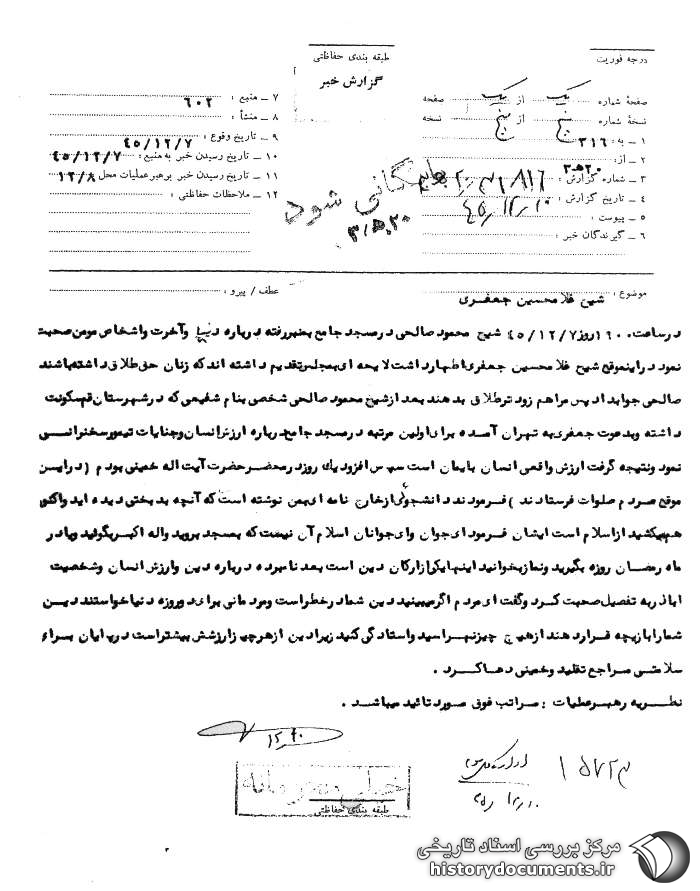 درجه فوریت
طبقه بندی حفاظتی
گزارش خبر
صفحهٔ شماره یک از یک صفحه
نسخهٔ شماره پنج از پنج نسخه
۱ ـ به : ۳۱۶
۲ ـ از : ۳۰ﻫ۲۰
۳ ـ شماره گزارش :
۴ ـ تاریخ گزارش : ۴۵/۱۲/۱۰
۵ ـ پیوست :
۶ ـ گیرندگان خبر :
۷ ـ منبع : ۶۰۲
۸ ـ منشأ :
۹ ـ تاریخ وقوع : ۴۵/۱۲/۷
۱۰ ـ تاریخ رسیدن خبر به منبع : ۴۵/۱۲/۷
۱۱ ـ تاریخ رسیدن خبر برهبر عملیات محل ۱۲/۸
۱۲ ـ ملاحظات حفاظتی :
بایگانی شود
موضوع : شیخ غلامحسین جعفری
عطف / پیرو :
درساعت ۱۶۰۰ روز ۴۵/۱۲/۷ شیخ محمود صالحی درمسجد جامع بمنبررفته درباره دنیا وآخرت واشخاص مومن صحبت
نمود دراینموقع شیخ غلامحسین جعفری اظهارداشت لایحه ای بمجلس تقدیم داشته اند که زنان حق طلاق داشته باشند
صالحی جواب داد پس مراهم زودترطلاق بدهند بعد ازشیخ محمود صالحی شخصی بنام شفیعی که درشهرستان قم سکونت
داشته وبدعوت جعفری به تهران آمده برای اولین مرتبه درمسجد جامع درباره ارزش انسان وجنایات تیمورسخنرانی
نمود ونتیجه گرفت ارزش واقعی انسان بایمان است سپس افزود یک روز درمحضرحضرت آیت اله خمینی بودم ( دراین
موقع مردم صلوات فرستادند ) فرمودند دانشجوئی ازخارج نامه ای بمن نوشته است که آنچه بدبختی دیده اید واکنون
هم میکشید ازاسلام است ایشان فرمود ای جوان وای جوانان اسلام آن نیست که بمسجد بروید واله اکبربگوئید ویا در
ماه رمضان روزه بگیرید ونمازبخوانید اینها یکی ازارکان دین است بعد نامبرده درباره دین وارزش انسان وشخصیت
اباذربه تفصیل صحبت کرد وگفت ای مردم اگرمیبینید دین شما درخطراست ومردمانی برای دوروزه دنیا خواستند دین
شمارا بازیچه قراردهند ازهیچ چیزنهراسید واستادگی کنید زیرا دین ازهرچیزارزشش بیشتراست درپایان برای
سلامتی مراجع تقلید وخمینی دعا کرد .
نظریه رهبرعملیات : مراتب فوق مورد تائید میباشد .
۱۵۷۲۳
۴۵/۱۲/۱۰
خیلی محرمانه
طبقه بندی حفاظتی
مرکز بررسی اسناد تاریخی
historydocuments.ir